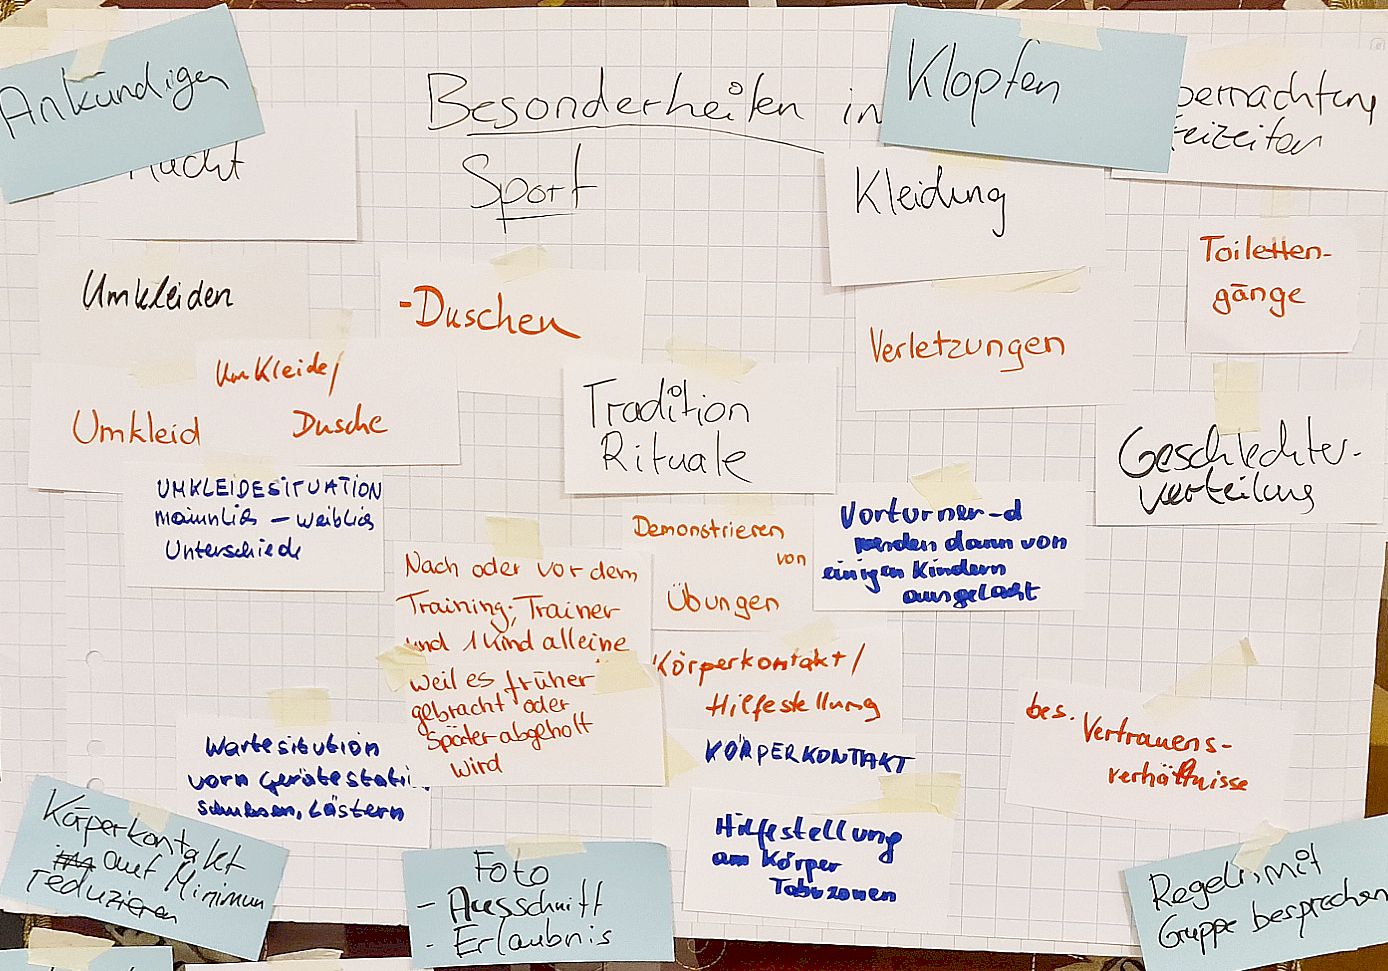 Ankündigen
Besonderheiten in
Sport
Klopfen
Kleidung
Toiletten-
gänge
Umkleiden
-Duschen
Verletzungen
Umkleide/
Dusche
Umkleid
Tradition
Rituale
Geschlechter-
verteilung
UMKLEIDESITUATION
männlich - weiblich
Unterschiede
Demonstrieren
von
Übungen
Vorturner-d
werden dann von
einigen Kindern
ausgelacht
Nach oder vor dem
Training; Trainer
und 1 Kind alleine
weil es früher
gebracht oder
später abgeholt
wird
Körperkontakt/
Hilfestellung
KÖRPERKONTAKT
bes. Vertrauens-
verhältnisse
Wartesitution
vorn Gerätestati
schubsen, Lästern
Hilfestellung
am Körper
Tabuzonen
Körperkontakt
auf Minimum
reduzieren
Foto
- Ausschnitt
- Erlaubnis
Regeln mit
Gruppe besprechen